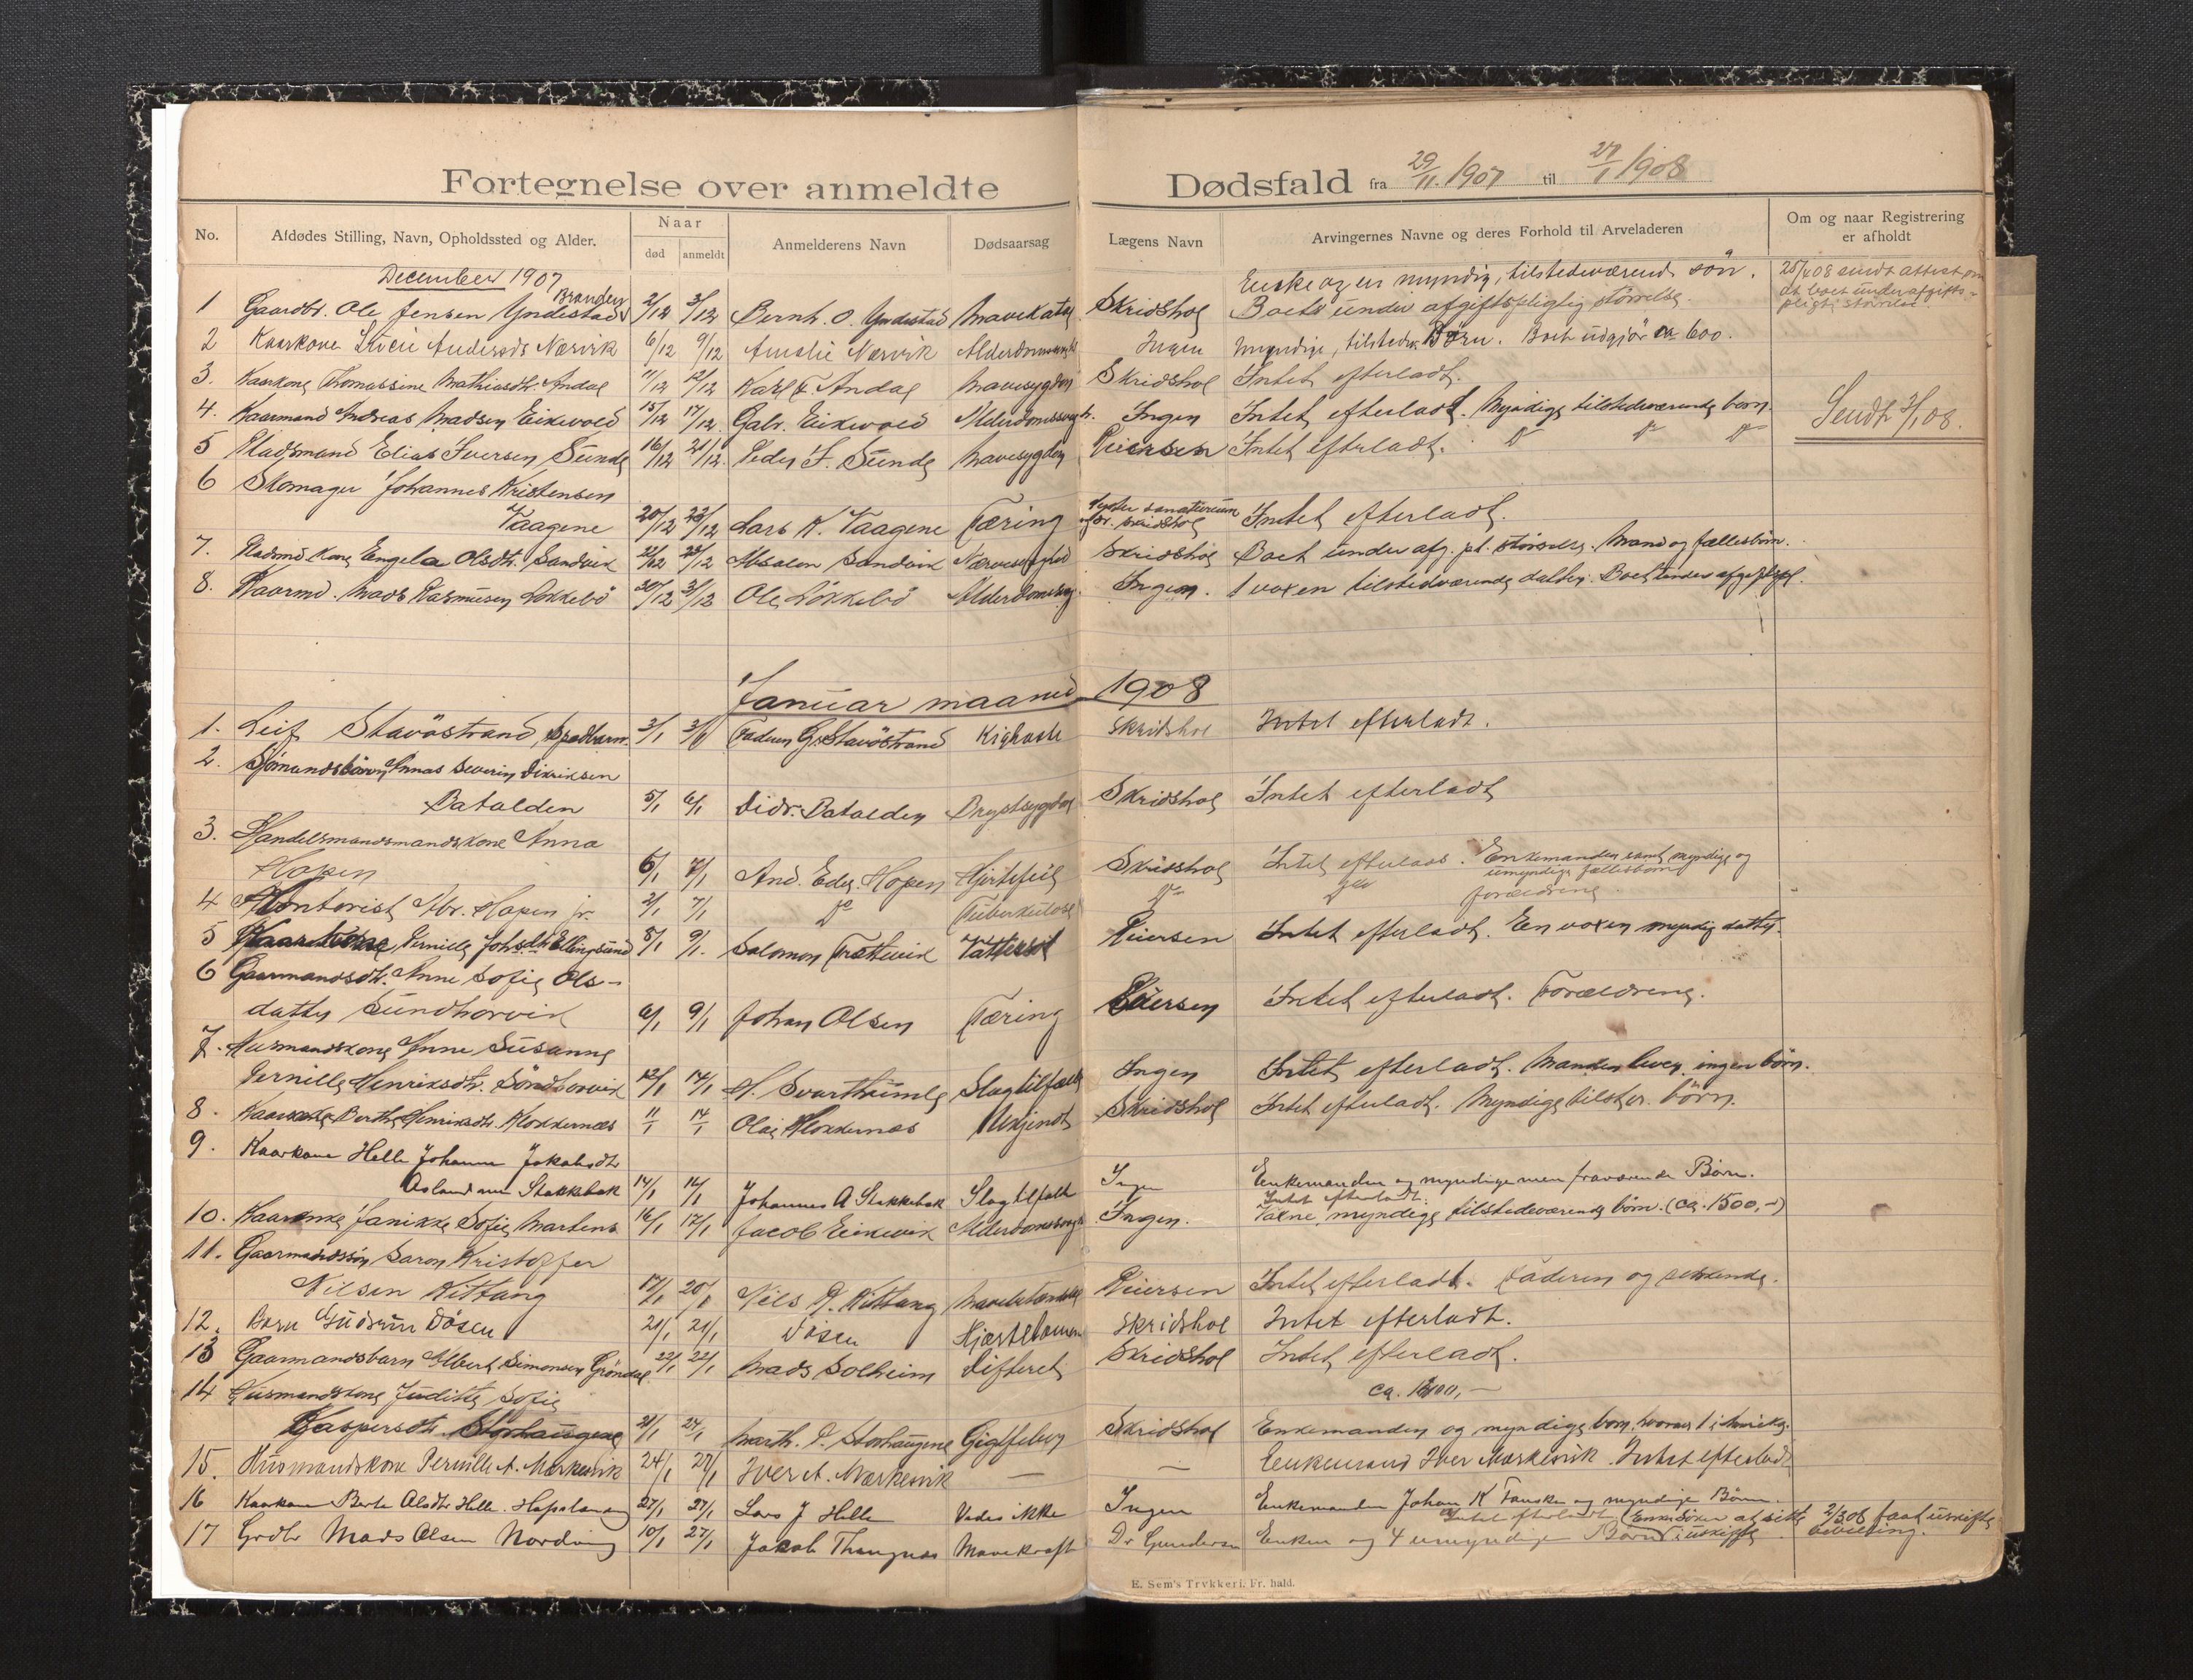 Fortegnelse over anmeldte Dødsfald fra 29/11 1907 til 27/1 1908
No. Afdødes Stilling, Navn, Opholdssted og Alder. Naar død anmeldt Anmelderens Navn Dødsaarsag Lægens Navn Arvingernes Navne og deres Forhold til Arveladeren Om og naar Registrering er afholdt
December 1907
Enke og en myndig, tilstedeværende søn. 25/4 08 sendt attest om
at boet under afgifts-
pligt. størrelse.
1 Gaardbr. Ole Jensen Yndestad 2/12 3/12 Bernh. O. Yndestad Mavekatar Skridshol Boets under afgiftspligtig størrelse.
2 Kaarkone Andersdt Nærvik 6/12 9/12 Amalie Nærvik Ingen Myndige, tilstedev. Børn. Boet udgjør ca 600.
3. Kaarkone Thomassine Mathiasdtr. Andal 11/12 12/12 Karl F. Andal Mavesygdom Skridshol Intet efterladt.
4. Kaarmand Andreas Madsen Eikevold 15/12 17/12 Gabr. Eikevold Alderdomssvagh. Ingen Intet efterladt. Myndige tilstedeværende børn. Sendt 3/1 08.
5 Pladsmand Elias Iversen Sunde 16/12 21/12 Peder I. Sunde Mavesygdom Reiersen Intet efterladt. do do do
6 Skomager Johannes Kristensen
Vaagene 20/12 23/12 Lars K. Vaagene Tæring sanatorium Skridshol Intet efterladt.
7. Kone Engela Olsdtr. Sandvik 23/12 Absalon Sandvik Skridshol Boet under afg. pl. størrelse. Mand og fællesbørn.
8. Kaarmd. Mads Rasmusen Løkkebø 30/12 31/12 Ole Løkkebø Alderdomssvag. Ingen. 1 voxen tilstedeværende datter. Boet under
Januar maaned 1908
1. Leif Stavøstrand Spædbarn 2/1 3/1 Faderen G. Stavøstrand Kighoste Skridshol Intet efterladt.
2. Severin Dikriksen
Batalden 5/1 6/1 Didr. Batalden Brystsygdom Skridshol Intet efterladt
3. Handelsmandsmandskone Anna
Hopen 6/1 7/1 And. Edv. Hopen Hjertefeil Skridshol Intet efterladt. Enkemanden samt myndige og
umyndige fællesbørn
4 Kontorist Hopen jr. 2/1 7/1 do Tuberkulose do do forældrene.
5 Pernille Johs.dtr. Ellingsund 8/1 9/1. Salomon Trættevik Vattersot Reiersen Intet efterladt. En voxen myndig datter.
6 Gaarmandsdtr. Anne Sofie Ols-
datter Sundhorvik 6/1 9/1 Johan Olsen Tæring Reiersen Intet efterladt. Forældrene.
7. Husmandskone Anne Susanne
Pernille Henriksdtr. Søndhorvik 12/1 14/1 Slagtilfælde Ingen Intet efterladt. Manden lever, ingen børn.
8. Berthe Henriksdtr. Klokkernæs 11/1 14/1 Olai Klokkernæs Ukjendt Skridshol Intet efterladt. Myndige tilstev. børn.
9. Kaarkone Helle Johanne Jakobsdtr
Stakkebak 14/1 16/1 Johannes A Stakkebak Slagtilfælde Ingen Enkemanden og myndige men fraværende Børn.
Intet efterladt.
10. Janikke Sofie Martens 16/1 17/1 Jacob Eikevik Alderdomssvagh. Ingen. Voxne, myndige tilstedeværende børn. (ca. 1500,-)
11. Gaarmandssøn Saron Kristoffer
Nilsen Kittang 17/1 20/1 Nils P. Kittang Reiersen Intet efterladt. Faderen og søskende.
12. Barn Gudrun Døsen 21/1 21/1 Døsen Skridshol Intet efterladt.
13 Gaarmandsbarn Albert Simonsen Grøndal 22/1 22/1 Mads Solheim Difterit Skridshol Intet efterladt.
14 Husmandskone Juditte Sofie ca.
Kaspersdt. Storhaugene 21/1 24/1 Marth. P. Storhaugene Gigtfeber Skridshol Enkemanden og myndige børn, hvoraf 1 i Amerika.
15. Husmandskone Pernille A. Markesvik 24/1 27/1 Iver A. Markesvik — — Enkemand Iver Markesvik. Intet efterladt
16 Kaarkone Berte Olsdtr Helle 27/1 27/1 Lars J Helle Vides ikke Ingen Enkemanden Johan K og myndige Børn.
Intet efterladt (Enken søker at sitte 2/3 08 faat uskifte
17 Grdbr Mads Olsen Nordvik 10/1 27/1 Jakob Mavekræft Dr Gundersen Enken og 4 umyndige Børn i uskifte bevilling.
E. Sem's Trykkeri. Fr.hald.